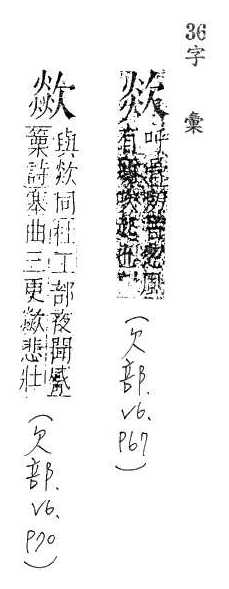 36字彙
欻
呼 忽風
有 吹起也
(欠部.V6.P67)
歘
與欻同杜工部夜聞觱
篥詩塞曲三更歘悲壯
(欠部.V6.P70)